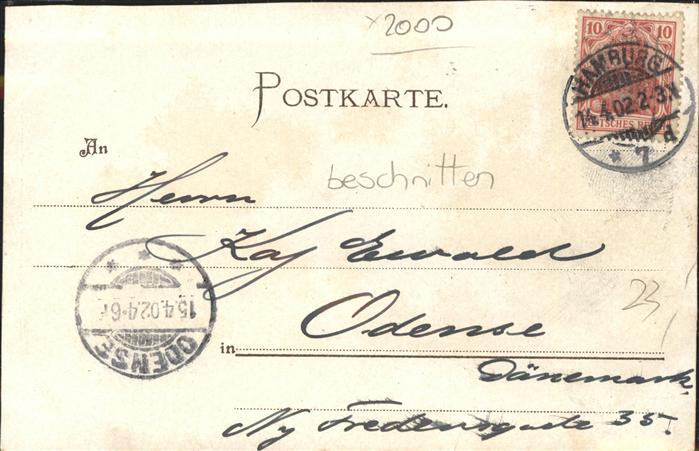 ×2000
10 10
HAMBURG
14.4.02.2-3N
* 7 d
POSTKARTE.
An
Herrn
beschnitten
Kaj Ewald
* * *
15.4.02.4-6E
ODENSE
23,
in Odense
Dänemark
Ny Fredensgade 35.